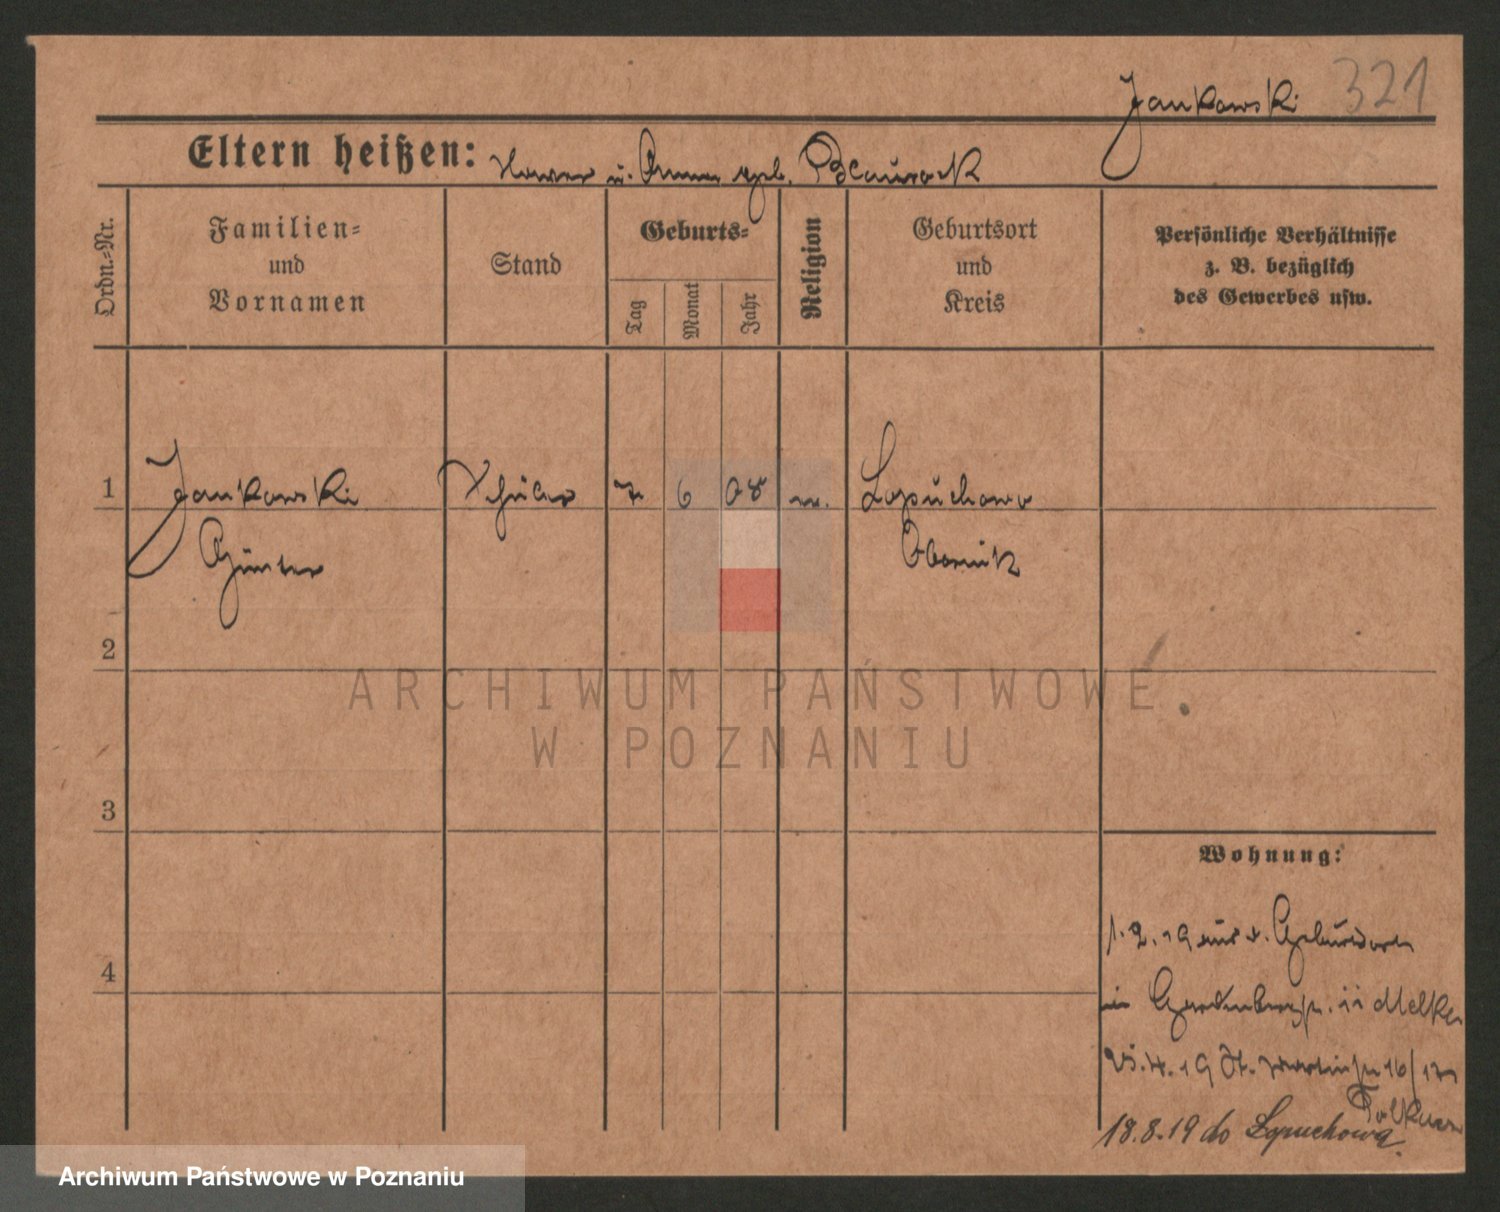 Jankowski 321
Eltern heißen: u. Anna geb.
Ordn.-Nr.
Familien-
und
Vornamen
Stand
Geburts-
Tag
Monat
Jahr
Religion
Geburtsort
und
Kreis
Persönliche Verhältnisse
z. B. bezüglich
des Gewerbes usw.
1 Jankowski Schüler 7 6 08 Lopuchowo
Günter Obornik
2
3
4
ARCHIWUM PAŃSTWOWE
W POZNANIU
Wohnung:
1.2.19 aus d. Geburtsort
in Gartenbergstr. 11
19 St. Martinstr 16/17
18.8.19 do Łopuchowa.
Archiwum Państwowe w Poznaniu